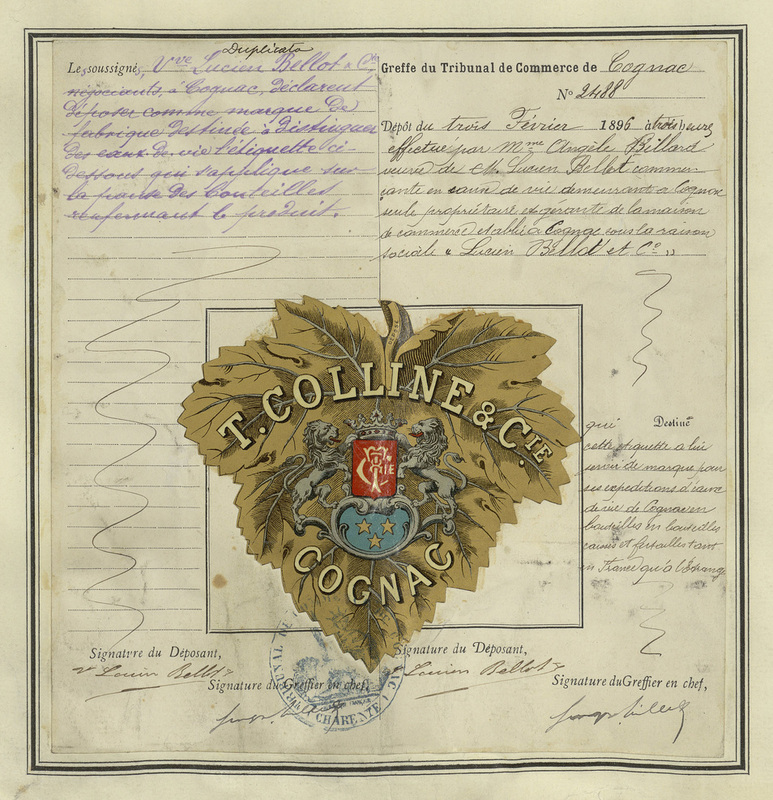 Duplicata
Les soussignés, Vve Lucien Bellot & Cie
négociants, à Cognac, déclarent
déposer comme marque de
fabrique destinée à distinguer
des eaux-de-vie l'étiquette ci-
dessous qui s'applique sur
la panse des bouteilles
renfermant le produit.
Greffe du Tribunal de Commerce de Cognac
No 2488
Dépôt du trois Février 1896 à trois heures
effectué par Mme Angèle Billard
veuve de M. Lucien Bellot commer-
çante en eaux de vie demeurant à Cognac
seule propriétaire et gérante de la maison
de commerce établie à Cognac sous la raison
sociale « Lucien Bellot et Co »
T. COLLINE & CIE
CIE
COGNAC
qui Destiné
cette étiquette a lui
servir de marque pour
ses expéditions d'eaux
de vie de Cognac en
bouteilles en bouteilles
caisses et futailles tant
en France qu'à l'étrange
Signature du Déposant,
Vve Lucien Bellot
Signature du Greffier en chef,
Signature du Déposant,
Lucien Bellot
Signature du Greffier en chef,
TRIBUNAL DE
CHARENTE